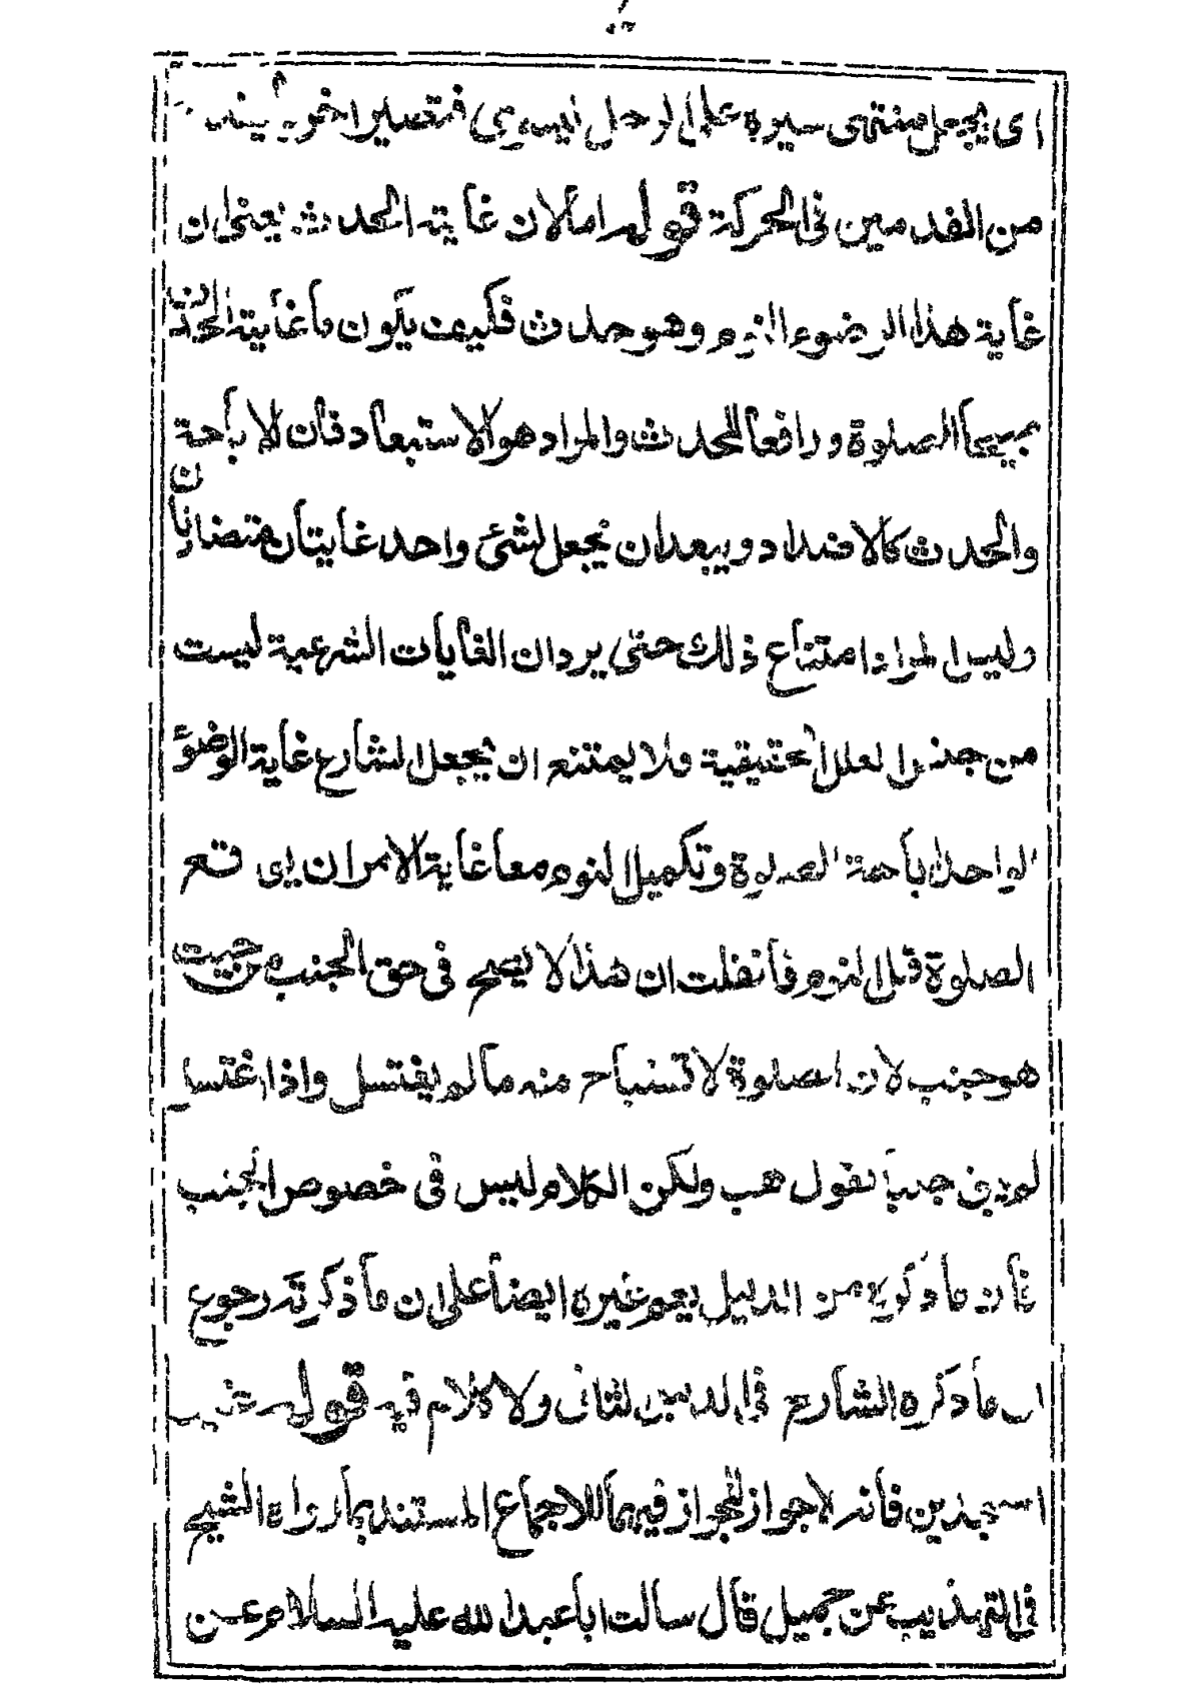 اى يجعل منتهى سيره على الرجل اليسرى فتصير اخر
من القدمين فى الحركة قوله اما لان غايته الحدث يعنى ان
غاية هذا الوضوء النوم وهو حدث فكيف يكون ما غايته الحدث
مبيحا الصلوة ورافعا للحدث والمراد هو الاستبعاد فان الاباحة
والحدث كالاضداد ويبعد ان يجعل لشئ واحد غايتان متضادتان
وليس المراد امتناع ذلك حتى يرد ان الغايات الشرعية ليست
من جنس العلل الحقيقية ولا يمتنع ان يجعل الشارع غاية الوضوء
الواحد اباحة الصلوة وتكميل النوم معا غاية الامر ان يقع
الصلوة قبل النوم فان قلت ان هذا لا يصح فى حق الجنب من حيث
هو جنب لان الصلوة لا تستباح منه ما لم يغتسل واذا اغتسل
لم يبق جنبا نقول هب ولكن الكلام ليس فى خصوص الجنب
فان ما ذكره من الدليل يعم غيره ايضا على ان ما ذكرته رجوع
الى ما ذكره الشارح فى الدليل الثانى ولا كلام فيه قوله
المسجدين فانه لا جواز للجواز فيهما للاجماع المستند بما رواه الشيخ
فى التهذيب عن جميل قال سالت ابا عبد الله عليه السلام عن